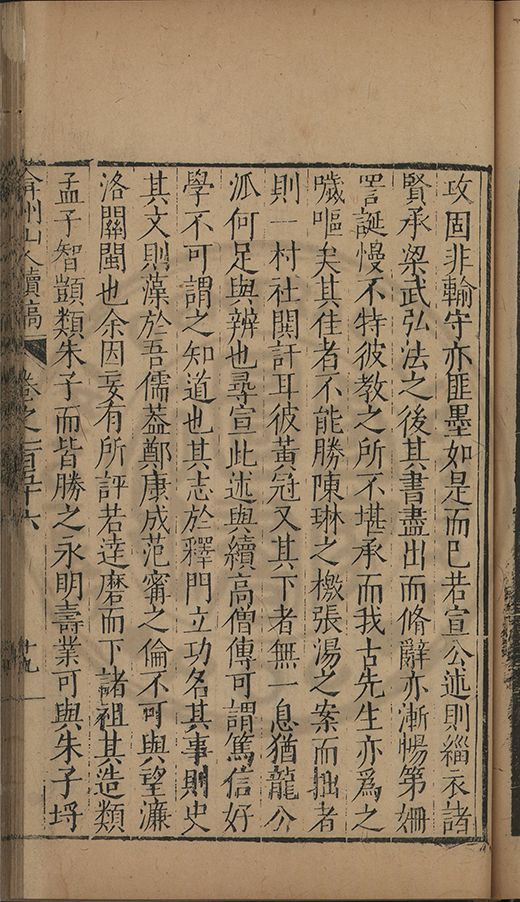 攻固非輸守亦匪墨如是而已若宣公述則緇衣諸
賢承梁武弘法之後其書盡出而脩辭亦漸暢第姍
詈誕慢不特彼教之所不堪承而我古先生亦爲之
噦嘔矣其佳者不能勝陳琳之檄張湯之案而拙者
則一村社鬨訐耳彼黃冠又其下者無一息猶龍公
派何足與辨也尋宣此述與續高僧傳可謂篤信好
學不可謂之知道也其志於釋門立功名其事則史
其文則藻於吾儒葢鄭康成范甯之倫不可與望濂
洛關閩也余因妄有所評若達磨而下諸祖其造類
孟子智顗類朱子而皆勝之永明壽業可與朱子埒
弇州山人續稿
卷之一百五十六
十九